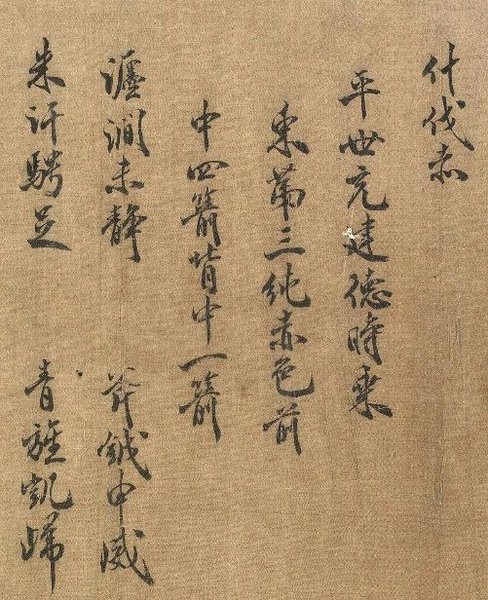 什伐赤
平世充建德時乘
東第三純赤色前
中四箭背中一箭
瀍澗未靜 斧鉞申威
朱汗騁足 青旌凱歸